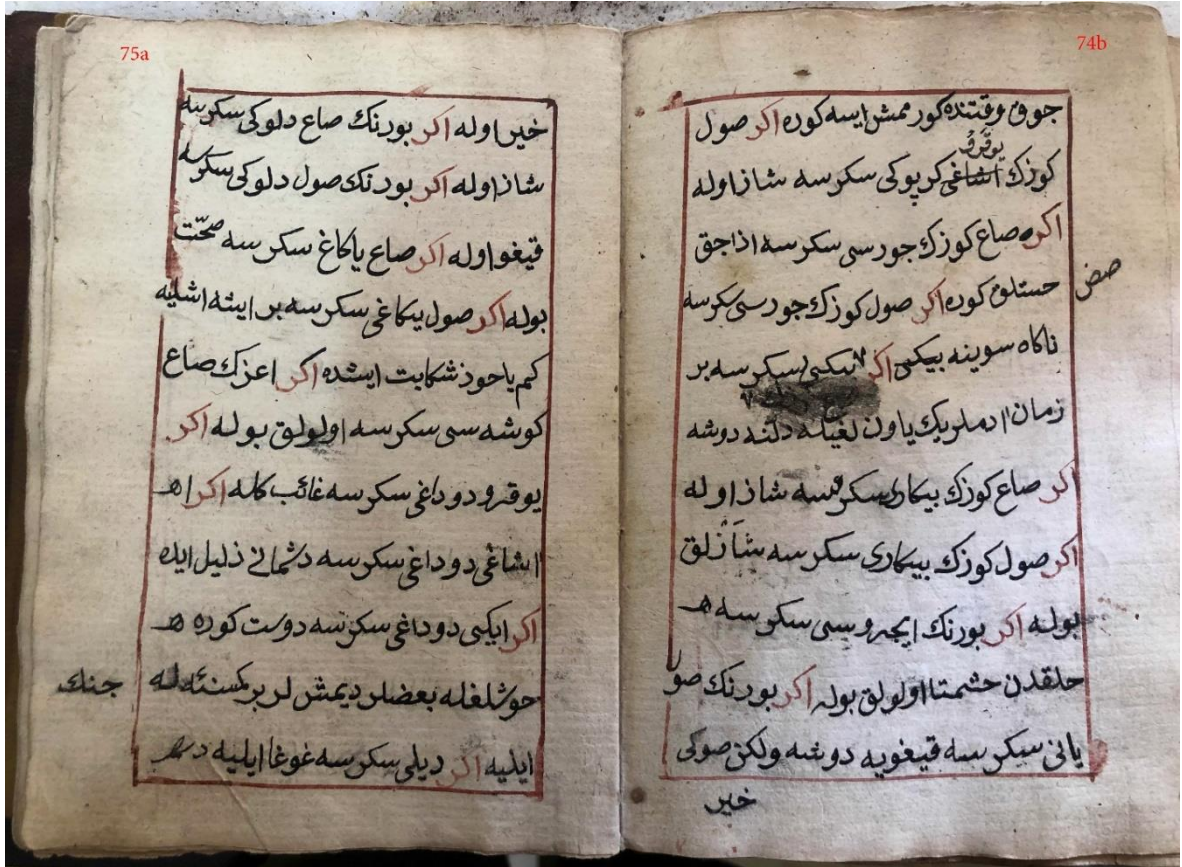 74b
جوق وقتنده كورممش ايسه كوره اكر صول
يوقرو
كوزك اشاغى كرپوكى سكرسه شاز اوله
اكر صاع كوزك جورسى سكرسه ازاجق
حستلق كوره اكر صول كوزك جورسى سكرسه
صض
ناكاه سوينه بيكى اكر ايكسى سكرسه بر
زمان ادملريك ياون لغيله دلنه دوشه
اكر صاع كوزك بيكارى سكرسه شاز اوله
اكر صول كوزك بيكارى سكرسه شَازْلق
بوله اكر بورنك ايچروسى سكرسه هـ
حلقدن حشمتا اولولق بوله اكر بورنك صو
يانى سكرسه قيغويه دوشه ولكن صوكى
خير
75a
خير اوله اكر بورنك صاع دلوكى سكرسه
شاز اوله اكر بورنك صول دلوكى سكرسه
قيغو اوله اكر صاع ياكاغ سكرسه صحّت
بوله اكر صول يكاغى سكرسه بر ايشه اشليه
كم ياحوذ شكايت ايشده اكر اعزك صاع
كوشه سى سكرسه اولولق بوله اكر
يوقرو دوداغى سكرسه غائب كله اكر اهـ
اشاغى دوداغى سكرسه دشمانى ذليل ايده
اكر ايكى دوداغى سكرسه دوست كوره هـ
حوشلغله بعضلر ديمش لر بر كمسنئه له
جنك
ايليه اكر ديلى سكرسه غوغا ايليه دهـ